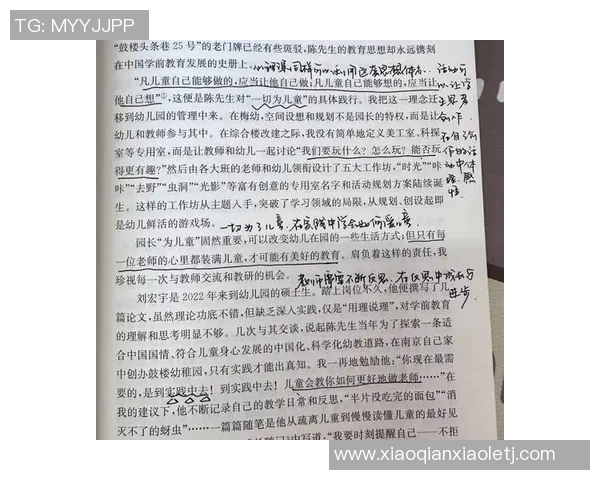 TG: MYYJJPP
“鼓楼头条巷25号”的老门牌已经有些斑驳，陈先生的教育思想却永远镌刻
在中国学前教育发展的史册上。
“凡儿童自己能够做的，应当让他自己做；凡儿童自己能够想的，应当让
他自己想”①，这便是陈先生对“一切为儿童”的具体践行。我把这一理念迁
移到幼儿园的管理中来。在梅幼，空间设想和规划不是园长的特权，而是让
幼儿和教师参与其中。在综合楼改建之际，我没有简单地定义美工室、科探
室等专用室，而是让教师和幼儿一起讨论“我们要玩什么？怎么玩？能否玩
得更有趣？”然后由各大班的老师和幼儿领衔设计了五大工作坊，“时光”“咔
咔”“去野”“虫洞”“光影”等富有创意的专用室名字和活动规划方案陆续诞
生。这样的工作坊从主题人手，突破了学习领域的局限，从规划、创设起即
是幼儿鲜活的游戏场。
一切为了儿童，在实践中学会如何爱儿童
园长“为儿童”固然重要，可以改变幼儿在园的一些生活方式；但只有每
一位老师的心里都装满儿童，才可能有美好的教育。肩负着这样的责任，我
珍视每一次与教师交流和教研的机会。
教师需要不断反思，在反思中成长与
进步。
刘宏宇是2022年来到幼儿园的硕士生。踏上岗位不久，他便撰写了几
篇论文，虽然理论功底不错，但缺乏深入实践，仅是“用理说理”，对学前教育
的理解和思考明显不够。几次与其交谈，说起陈先生当年为了探索一条适
合中国国情、符合儿童身心发展的中国化、科学化幼教道路，在南京自己家
中创办鼓楼幼稚园，只有实践才能出真知。我一再地勉励他：“你现在最需
要的，是到实践中去！到实践中去！儿童会教你如何更好地做老师……”在
我的建议下，他不断记录自己的教学日常和反思，“半片没吃完的面包”“消
灭不了的蚜虫”……一篇篇随笔是他从疏离儿童到慢慢读懂儿童的最好见
中写道，“我要时刻提醒自己——不拒
www.xiaoqianxiaoletj.com